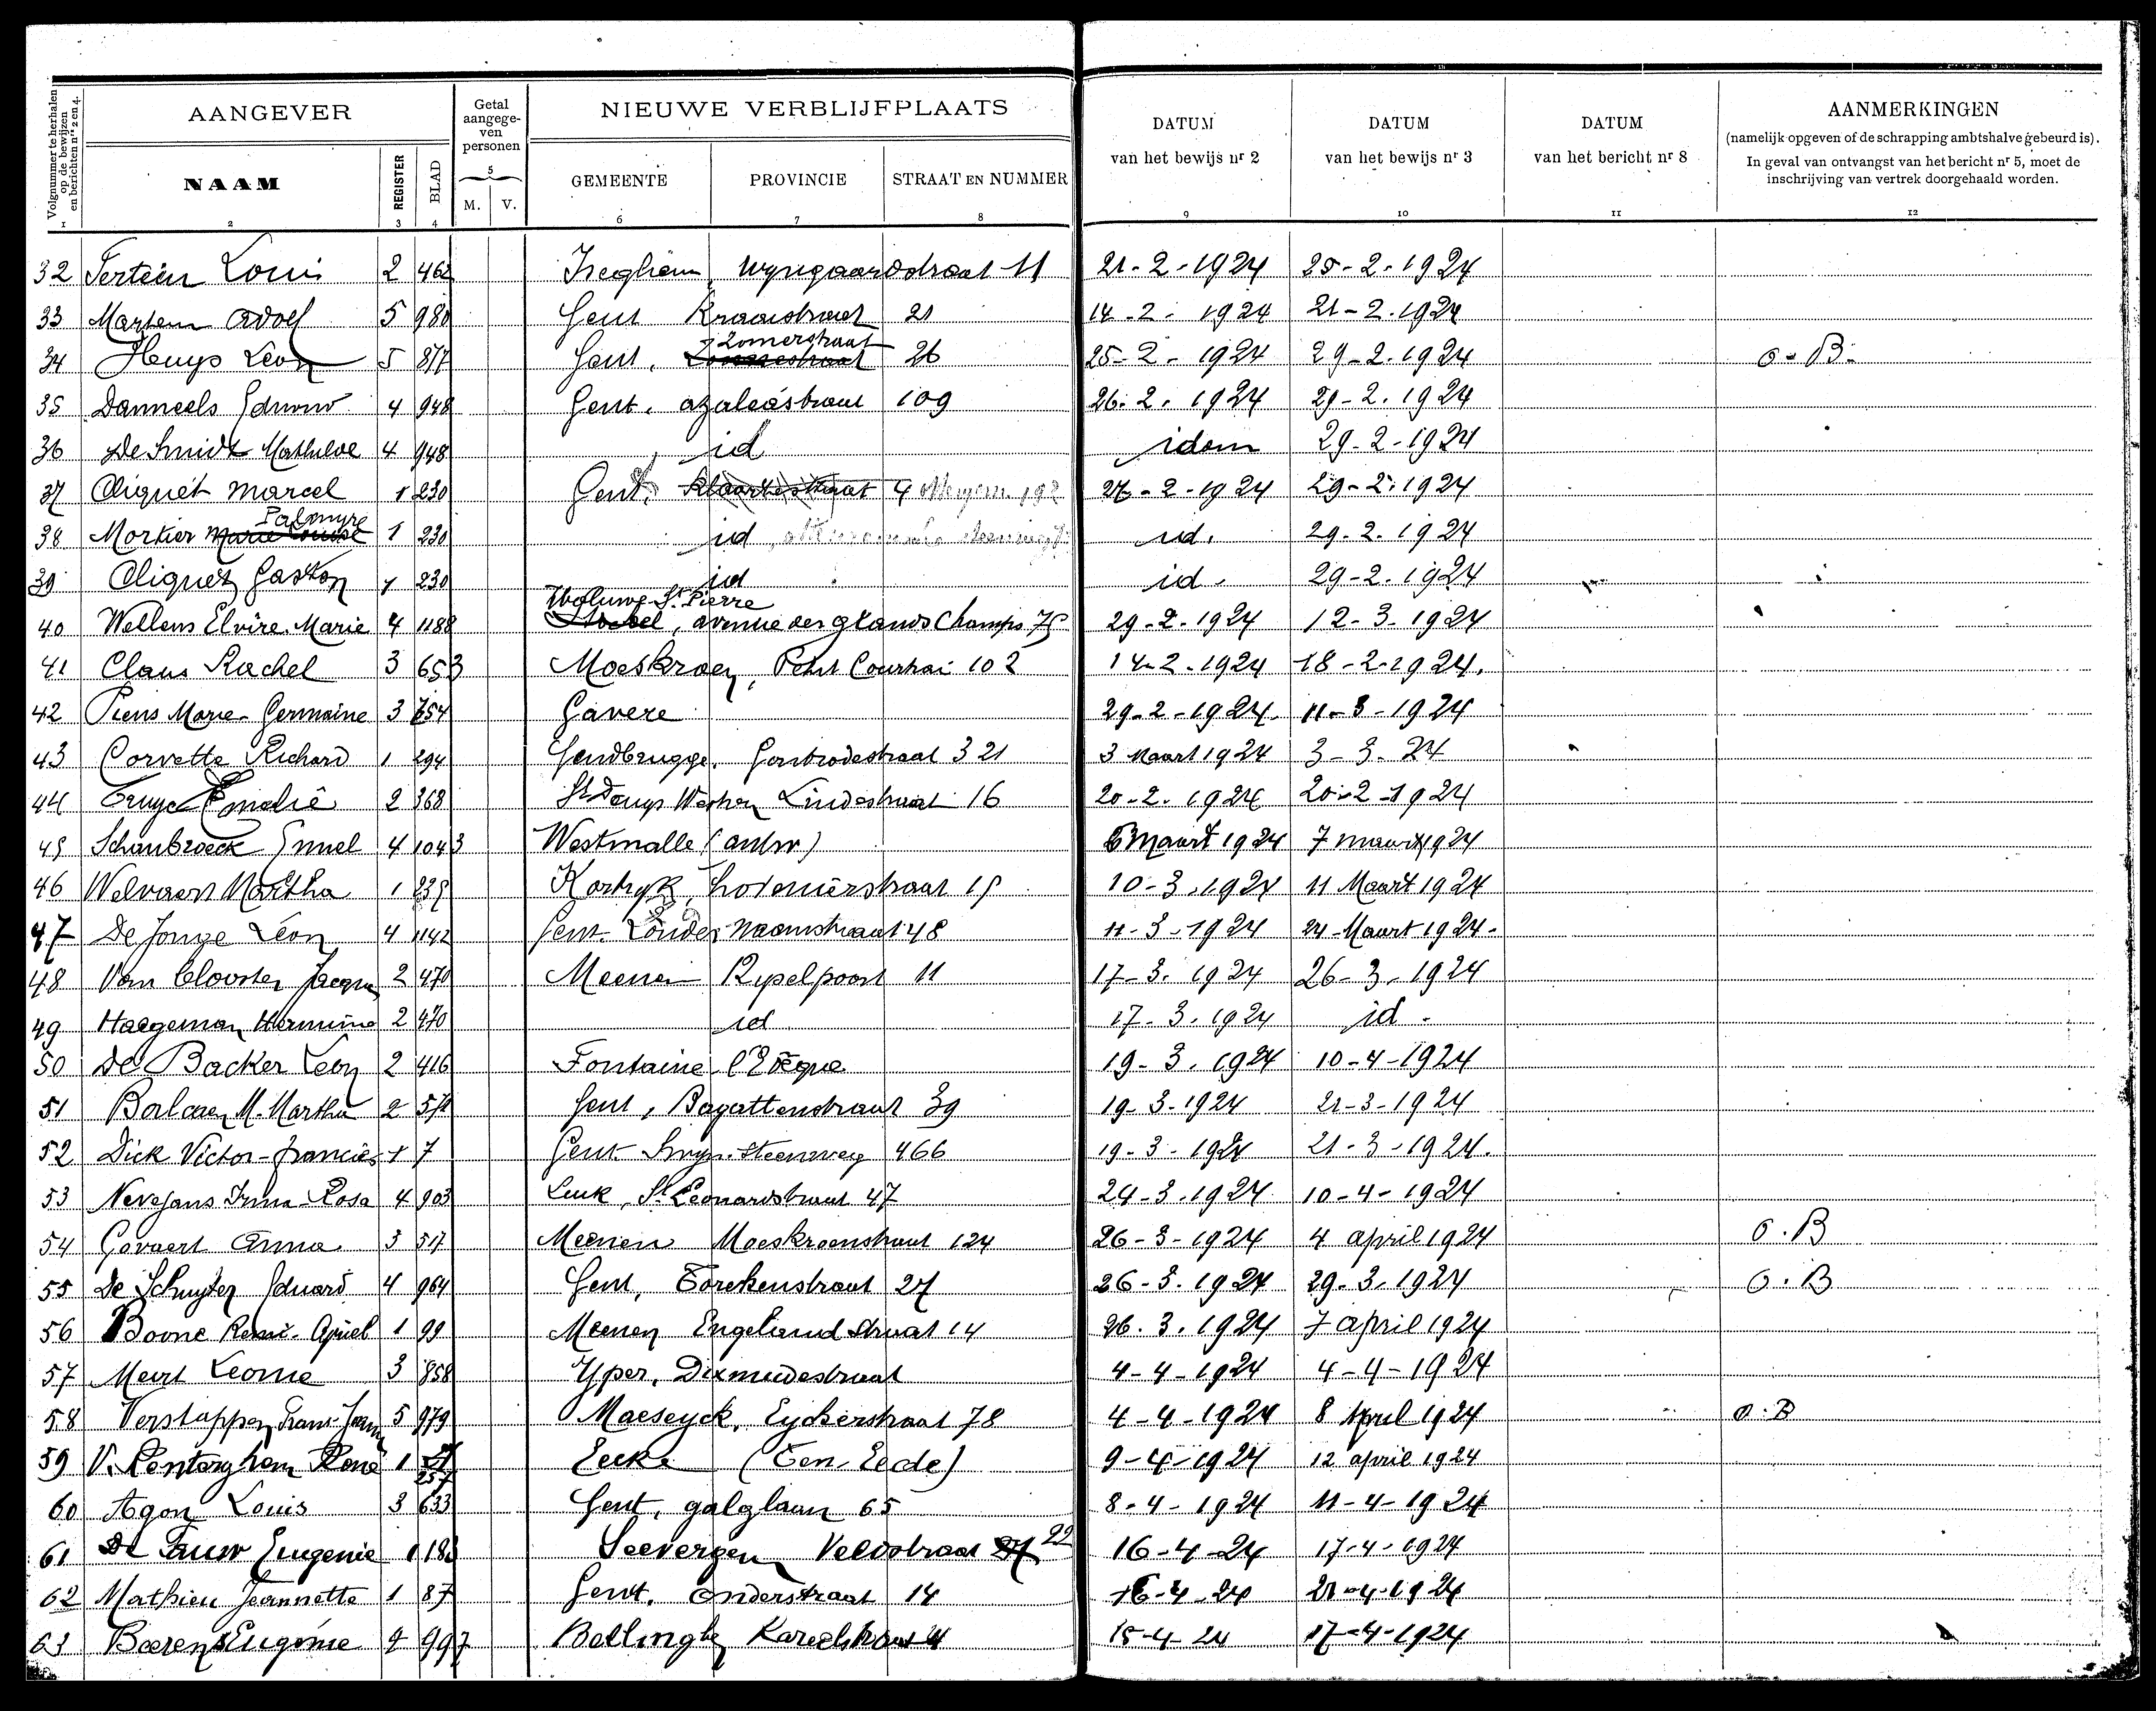 Volgnummer te herhalen op de bewijzen en berichten nrs 2 en 4.
AANGEVER
NAAM
REGISTER
BLAD
Getal aangege-ven personen
5
M. V.
NIEUWE VERBLIJFPLAATS
GEMEENTE PROVINCIE STRAAT EN NUMMER
DATUM van het bewijs nr 2
DATUM van het bewijs nr 3
DATUM van het bericht nr 8
AANMERKINGEN
(namelijk opgeven of de schrapping ambtshalve gebeurd is).
In geval van ontvangst van het bericht nr 5, moet de inschrijving van vertrek doorgehaald worden.
1 2 3 4 6 7 8 9 10 11 12
32 Tertein Louis 2 462 Iseghem, Wyngaardstraat 11 21-2-1924 25-2-1924
33 Martem Adolf 5 980 Gent Kraanstraat 21 14-2-1924 21-2-1924
34 Huys Leon 5 817 Gent, Zomerstraat 26 25-2-1924 29-2-1924 O-B-
35 Danneels Edmond 4 948 Gent, azaleastraat 109 26-2-1924 29-2-1924
36 De Smidt Mathilde 4 948 id idem 29-2-1924
37 Cliquet Marcel 1 230 Gent, 9 27-2-1924 29-2-1924
38 Mortier Palmyre Marie Louise 1 230 id id. 29-2-1924
39 Cliquet Gaston 1 230 id id. 29-2-1924
40 Wellens Elvire Marie 4 1188 Woluwe St Pierre, avenue des grands Champs 75 29-2-1924 12-3-1924
41 Claus Rachel 3 653 Moeskroen, Petit Courtrai 102 14-2-1924 18-2-1924.
42 Piens Marie-Germaine 3 754 Gavere 29-2-1924 11-3-1924
43 Corvette Richard 1 294 Gendbrugge, 321 3 Maart 1924 3-3-24
44 Cruyc Emelie 2 368 St Denys Westrem Lindestraat 16 20-2-1924 20-2-1924
45 Schaubroeck Emiel 4 1043 Westmalle (antw) 6 Maart 1924 7 maart 1924
46 Welvaert Martha 1 239 Kortryk, hoveniersstraat 15 10-3-1924 11 Maart 1924
47 De Jonge Léon 4 1142 Gent. Zonder Naamstraat 48 11-3-1924 24-Maart 1924-
48 Van Clooster Jacques 2 470 Meenen Rysselpoort 11 17-3-1924 26-3-1924
49 Haegeman Hermine 2 470 id 17-3-1924 id-
50 De Backer Leon 2 416 Fontaine l'Evêque 19-3-1924 10-4-1924
51 Balcaen M. Martha 2 572 Gent, Bagattenstraat 39 19-3-1924 21-3-1924
52 Dick Victor-francies 1 7 Gent steenweg 466 19-3-1924 21-3-1924.
53 Nevejans Irma-Rosa 4 903 Luik, St Leonardstraat 47 24-3-1924 10-4-1924
54 Govaert Anna 3 517 Meenen Moeskroenstraat 124 26-3-1924 4 april 1924 O.B
55 De Schuyter Eduard 4 964 Gent, Torekenstraat 27 26-3-1924 29-3-1924 O.B
56 Boone Remi-Apriel 1 99 Meenen Engeland straat 14 26.3.1924 7 april 1924
57 Meirt Leonie 3 858 Yper, Dixmudestraat 4-4-1924 4-4-1924
58 Verstappen Frans-Jean 5 979 Maeseyck, Eyckerstraat 78 4-4-1924 8 April 1924 O.B
59 V. Renterghem René 1 257 Eecke (Ten Eede) 9-4-1924 12 april 1924
60 Agon Louis 3 633 Gent, galglaan 65 8-4-1924 11-4-1924
61 De Pauw Eugenie 1 183 Seevergem Veldstraat 22 16-4-24 17-4-1924
62 Mathieu Jeannette 1 87 Gent, Onderstraat 14 16-4-24 21-4-1924
63 Beerens Eugenie 4 997 Bellinghe 15-4-24 17-4-1924